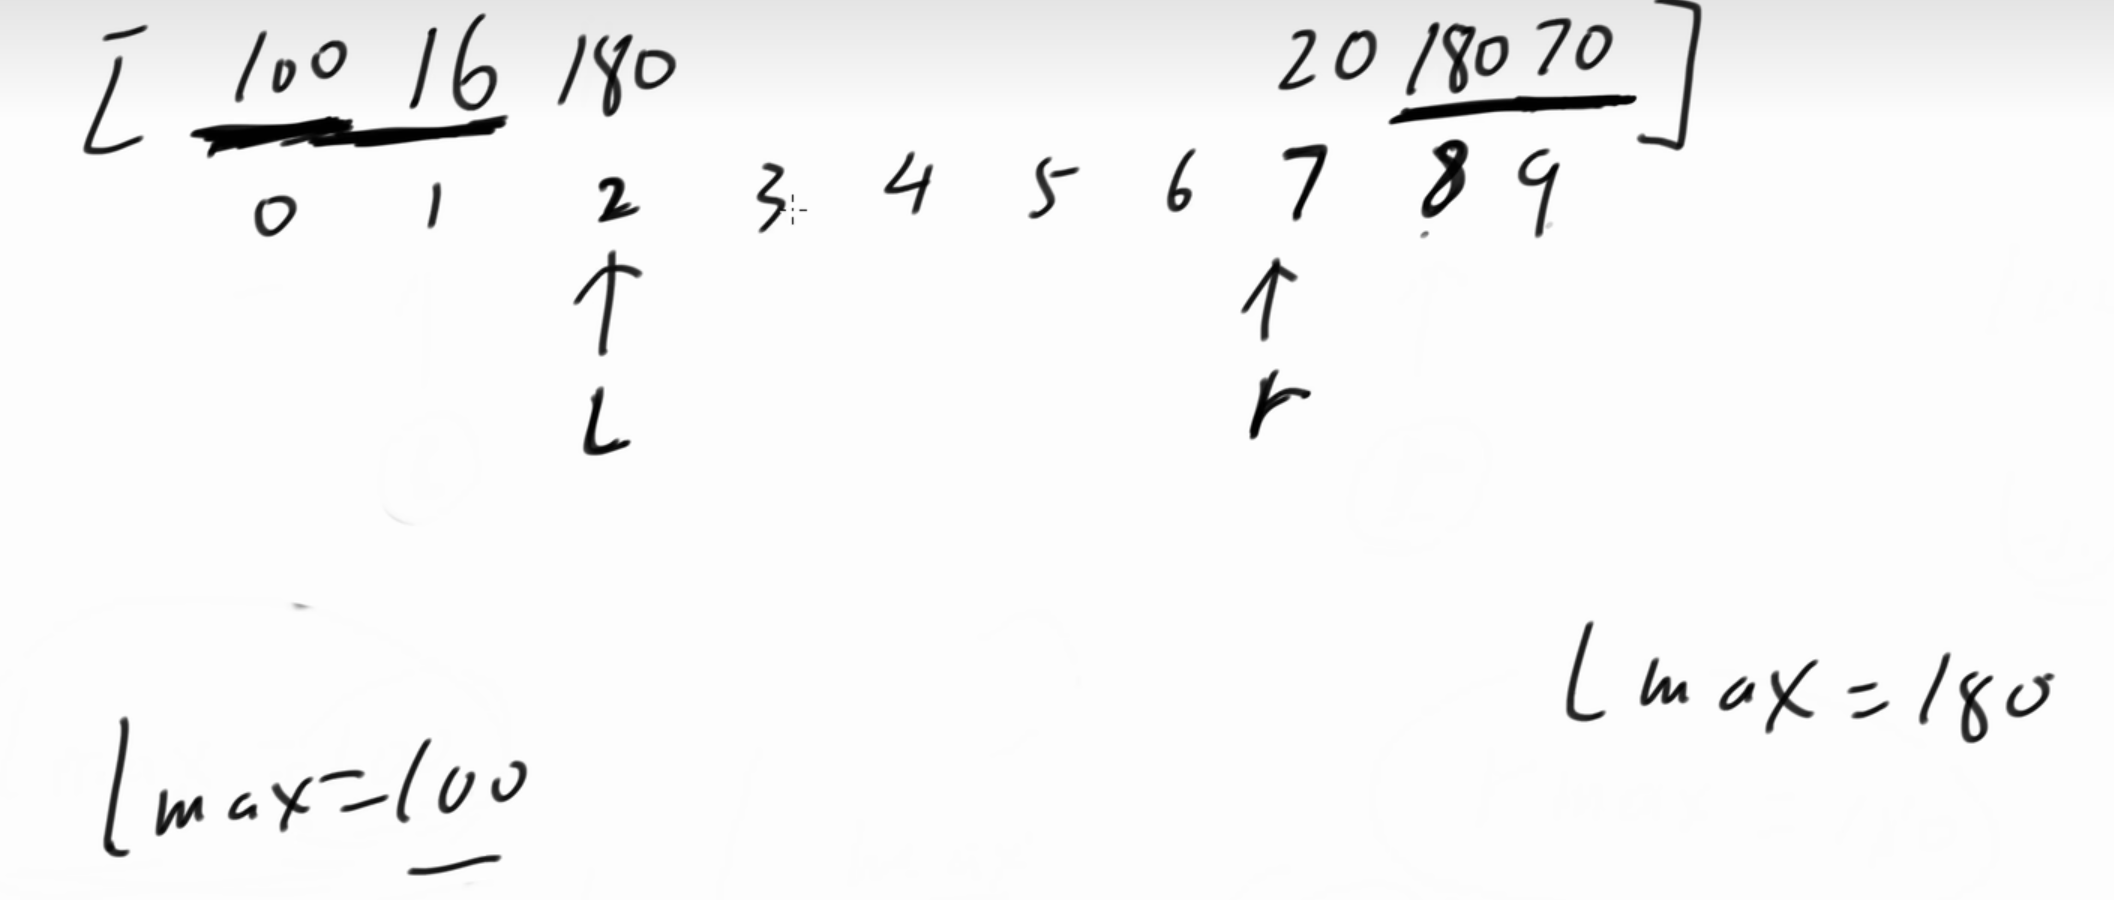 [ 100 16 180 20 180 70 ]
0 1 2 3 4 5 6 7 8 9
L r
Lmax=180
Lmax=100